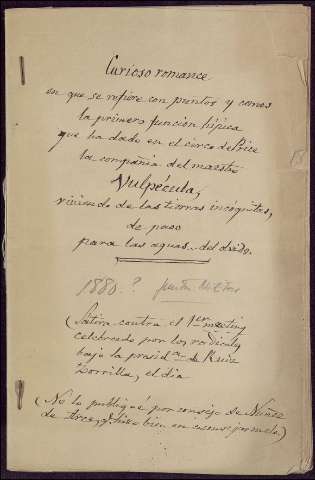 Curioso romance
en que se refiere con puntos y comas
la primera función hípica
que ha dado en el circo de Price
la compañía del maestro
Vulpécula,
viniendo de las tierras incógnitas,
de paso
para las aguas del olvido.
1880.?
(Sátira contra el 1er meeting
celebrado por los radicales
bajo la presid.cia de Ruiz
Zorrilla, el día
(No la publiqué por consejo de Nuñez
de Arce, é hizo bien en aconsejármelo)